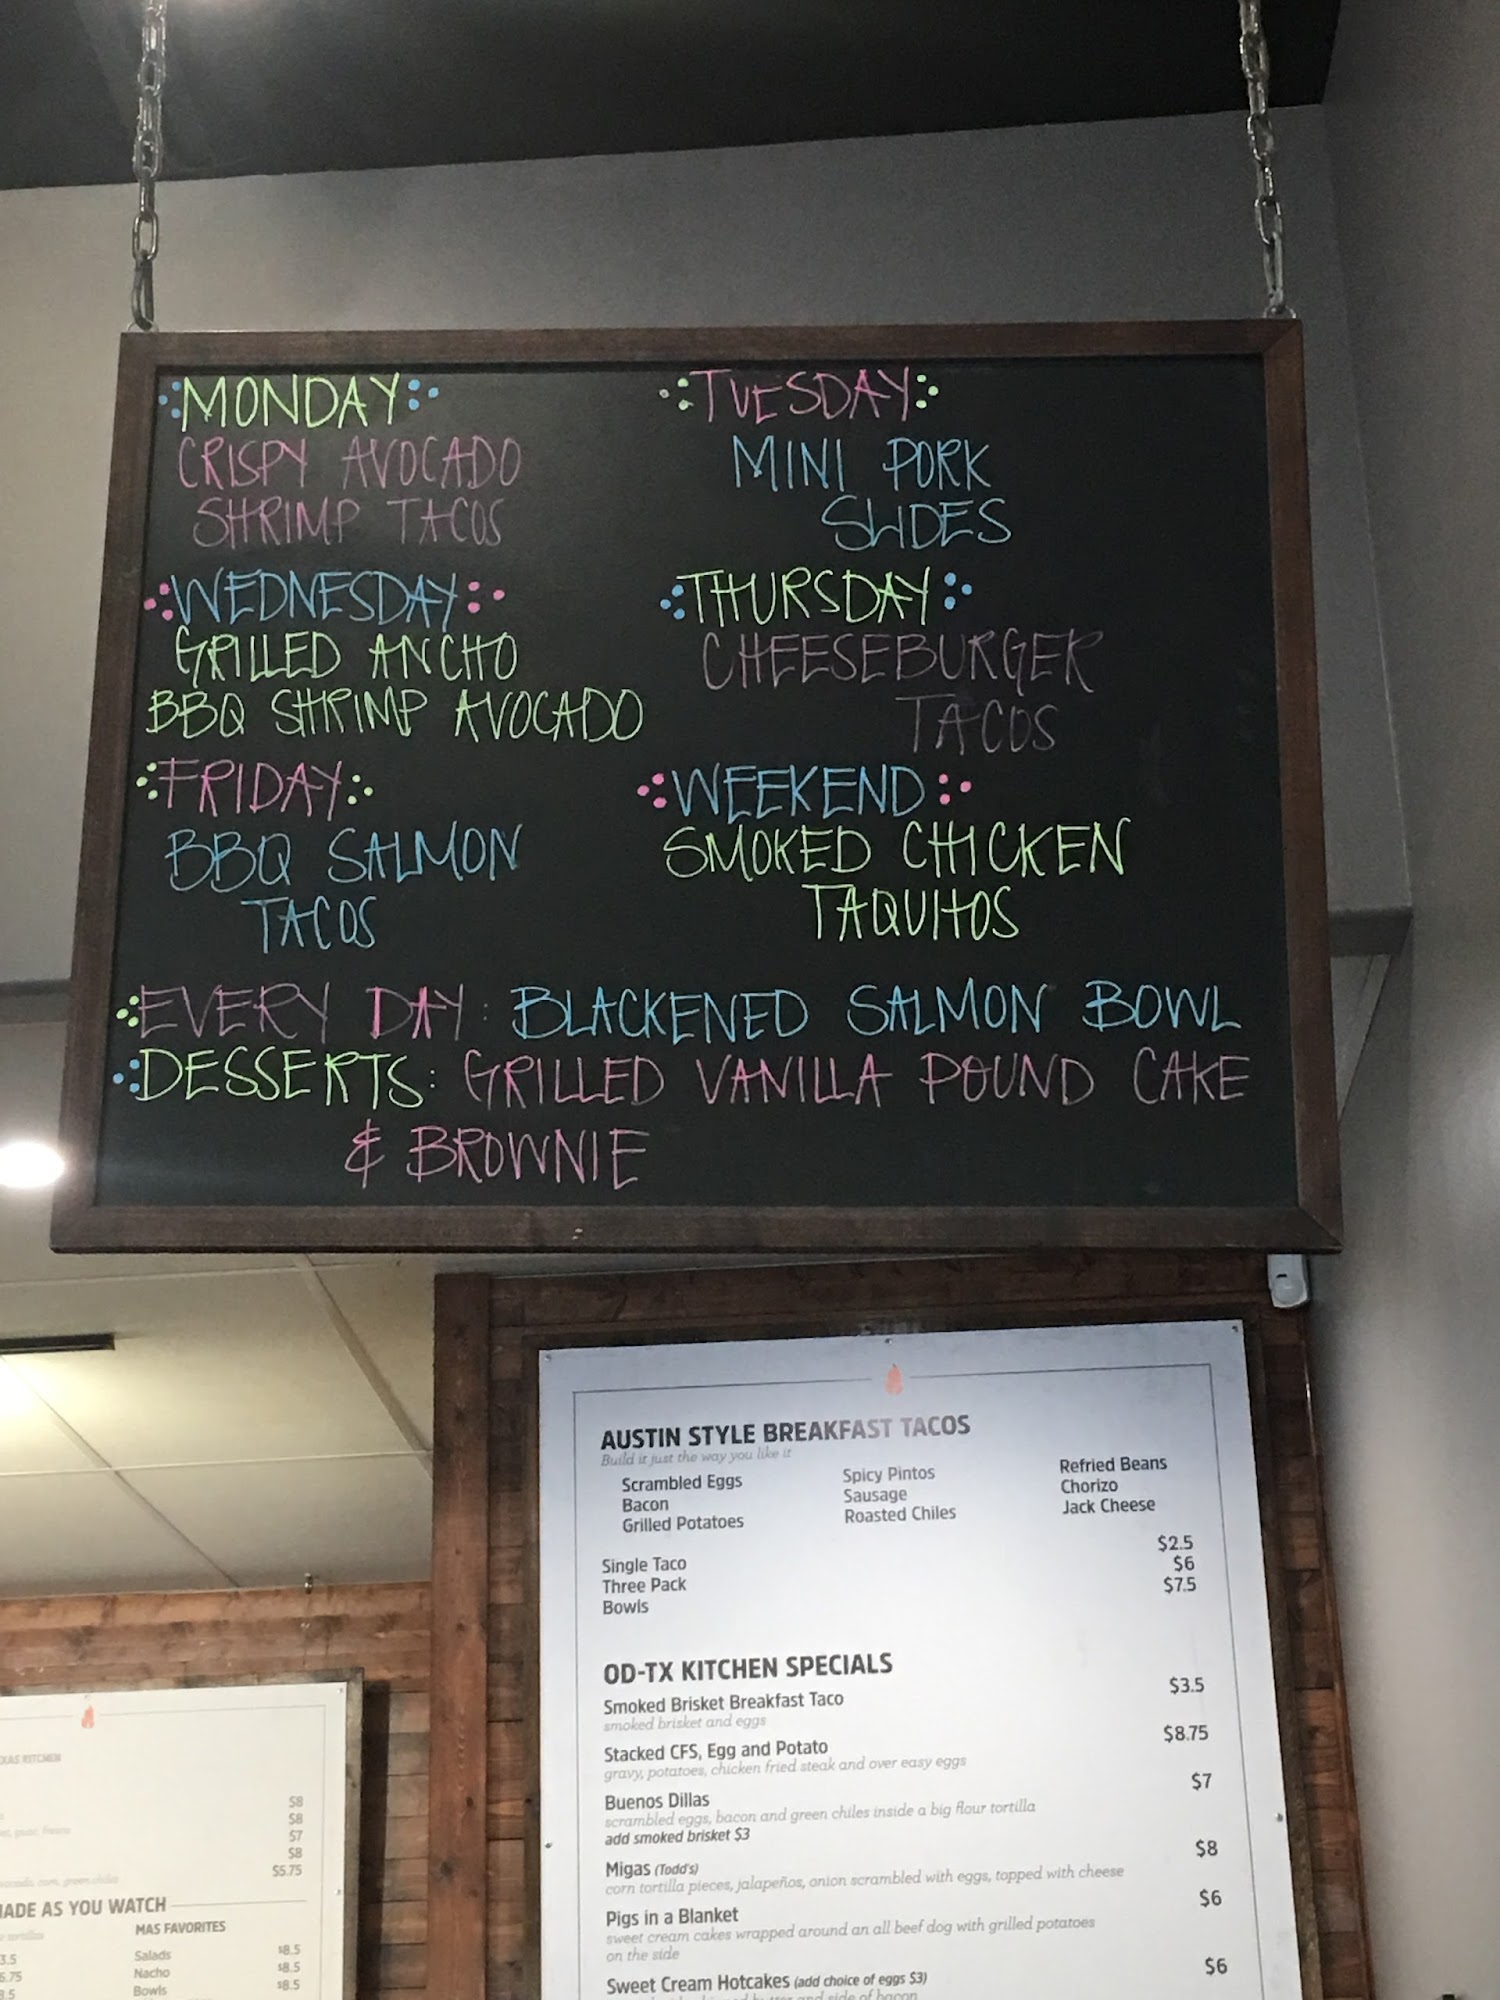 MONDAY
CRISPY AVOCADO
SHRIMP TACOS
TUESDAY
MINI PORK
SLIDES
WEDNESDAY
GRILLED ANCHO
BBQ SHRIMP AVOCADO
THURSDAY
CHEESEBURGER
TACOS
FRIDAY
BBQ SALMON
TACOS
WEEKEND
SMOKED CHICKEN
TAQUITOS
EVERY DAY: BLACKENED SALMON BOWL
DESSERTS: GRILLED VANILLA POUND CAKE
& BROWNIE
AUSTIN STYLE BREAKFAST TACOS
Build it just the way you like it
Scrambled Eggs Spicy Pintos Refried Beans
Bacon Sausage Chorizo
Grilled Potatoes Roasted Chiles Jack Cheese
Single Taco $2.5
Three Pack $6
Bowls $7.5
OD-TX KITCHEN SPECIALS
Smoked Brisket Breakfast Taco $3.5
smoked brisket and eggs
Stacked CFS, Egg and Potato $8.75
gravy, potatoes, chicken fried steak and over easy eggs
Buenos Dillas $7
scrambled eggs, bacon and green chiles inside a big flour tortilla
add smoked brisket $3
Migas (Todd's) $8
corn tortilla pieces, jalapeños, onion scrambled with eggs, topped with cheese
Pigs in a Blanket $6
sweet cream cakes wrapped around an all beef dog with grilled potatoes
on the side
Sweet Cream Hotcakes (add choice of eggs $3) $6
and side of bacon
KITCHEN
$8
$8
$7
$8
corn, green chiles $5.75
AS YOU WATCH
MAS FAVORITES
Salads $8.5
Nacho $8.5
Bowls $8.5